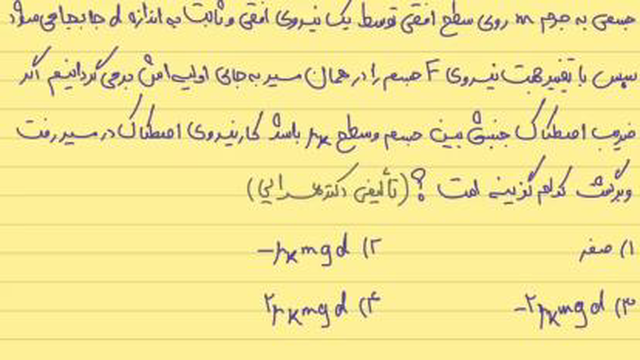 جسمی به جرم m روی سطح افقی توسط یک نیروی افقی و ثابت به اندازه d جابجا می‌شود
سپس با تغییر جهت نیروی F جسم را در همان مسیر به جای اولیه اش برمی‌گردانیم اگر
ضریب اصطکاک جنبشی بین جسم و سطح μk باشد کار نیروی اصطکاک در مسیر رفت
و برگشت کدام گزینه است؟ (تألیفی دکتر
۱) صفر ۲) -μk mgd
۳) -۲μk mgd ۴) ۲μk mgd